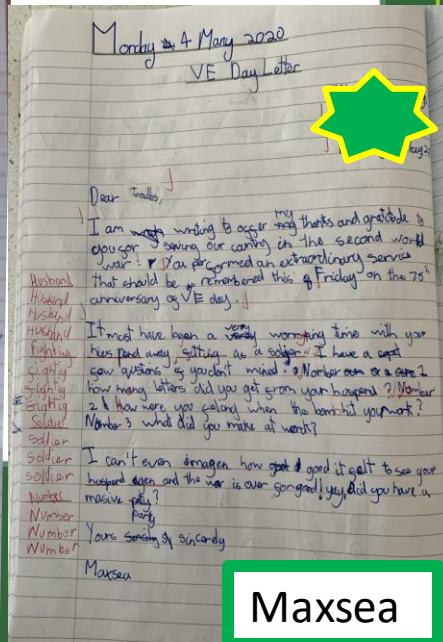 Monday 4 Many 2020
VE Day Letter
Dear Toodles,
I am writing to offer my thanks and gratitude to
you for saving our cantry in the second world
war! You performed an extraordinary service
that should be remembered this Friday on the 75th
anniversary of VE day.
It most have been a worrying time with your
huspand away, fitting as a soldger. I have a
few quistions if you don't mined. Nomber 1
how many letters did you get from your hospend? Nomber
2 How were you felang when the bomb hit your work?
Nomber 3 what did you make at work?
I can't even imagen how good it felt to see your
huspand agen and the war is over so good! yay, did you have a
masive party?
Yours sincarely
Maxsea
Husband
Husband
Husband
Husband
fighting
slightly
slightly
Soldier
soldier
soldier
soldier
Number
Number
Number
Number
Maxsea